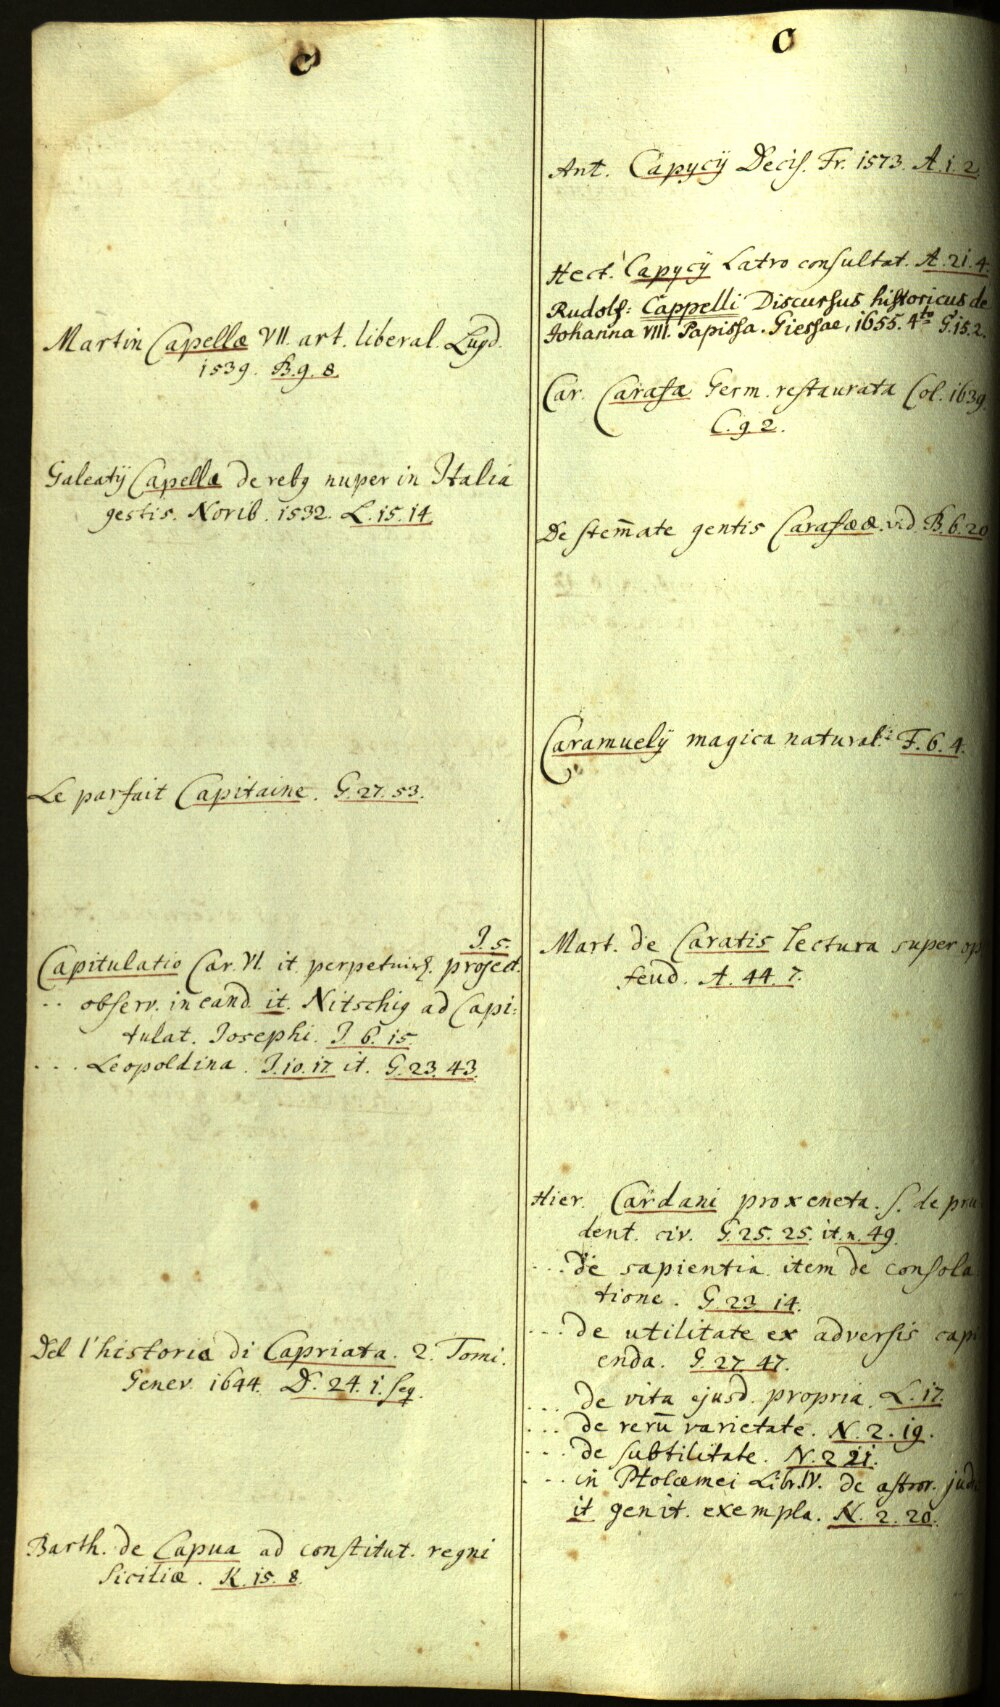 C
Martin Capellæ VII. art. liberal. Lugd.
1539. B. 9. 8.
Galeatÿ Capella de rebg nuper in Italia
gestis. Norib. 1532. L. 15. 14.
Le parfait Capitaine. G. 27. 53.
J. 5.
Capitulatio Car. VI. it. perpetuæ project.
.. observ. in eand. it. Nitschig ad Capi:
tulat. Josephi. J. 6. 15.
... Leopoldina. J. 10. 17. it. G. 23. 43.
Del l'historia di Capriata. 2. Tomi.
Genev. 1644. D. 24. 1. seq.
Barth. de Capua ad constitut. regni
Siciliæ. K. 15. 8.
C
Ant. Capycÿ Decis. Fr. 1573. A. 1. 2.
Hect. Capycÿ Latro consultat. A. 21. 4.
Rudolf: Cappelli Discursus historicus de
Johanna VIII. Papissa. Giessae, 1655. 4to G. 15. 2.
Car. Carafa Germ. restaurata Col. 1639.
C. 9. 2.
De stem̄ate gentis Carafææ. vid. B. 6. 20
Caramuelÿ magica natural. F. 6. 4.
Mart. de Caratis lectura super op
feud. A. 44. 7.
Hier. Cardani proxeneta. s. de pru
dent. civ. G. 25. 25. it. n. 49.
... de sapientia item de consola
tione. G. 23. 14.
... de utilitate ex adversis capi
enda. G. 27. 47.
... de vita ejusd. propria. L. 17.
... de rerū varietate. N. 2. 19.
... de subtilitate. N. 2 21.
... in Ptolæmei Libr. IV. de astror. judi
it genit. exempla. N. 2. 20.